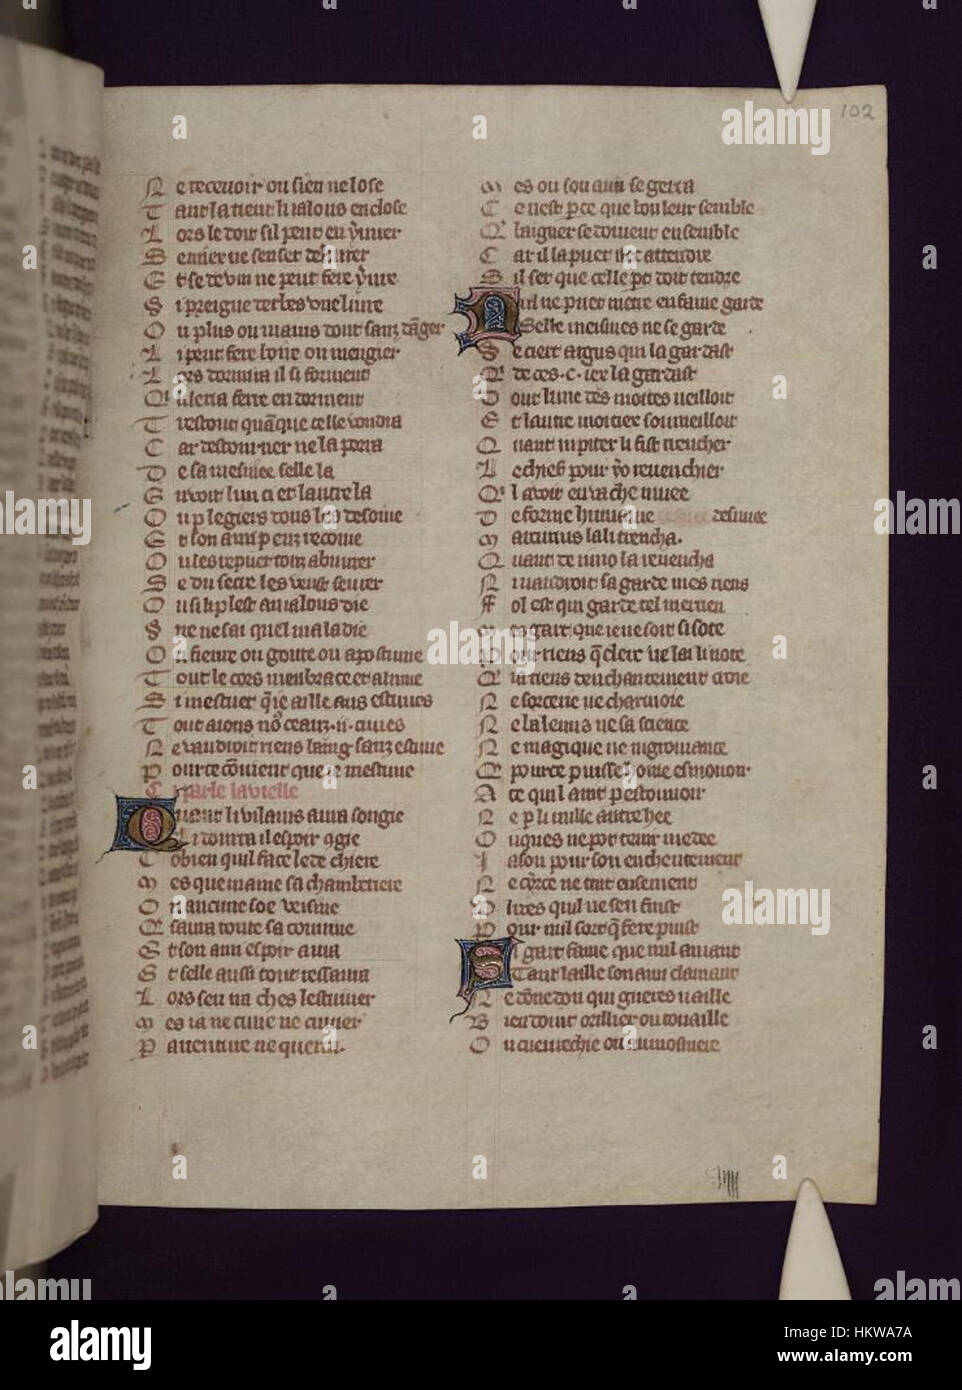 102
N e receuoir ou sien ne lose
T ant la tient li ialous enclose
L ors le doit sil peut enyvrer
S e mier ne sen set deliurer
E t se de vin ne peut fere yvre
S i preigne derbes une liure
O u plus ou mains dont sanz danger
L i peut fere boiure ou mengier
L ors dormira il si forment
Q il lera fere en dorment
T restout quanque celle voudra
C ar destourner ne la porra
D e sa mesniee selle la
E nvoit lun ci et lautre la
O u p legiers dous les desoiue
E t son ami p eus recoiue
O u les repuet touz abuurer
S e du secre les veut seurer
O u sil li plest au ialous die
S ire ne sai quel maladie
O u fieure ou goute ou apostume
T out le cors membrace et alume
S i mestuet que iaille aus estuues
T out aions nos ceanz .ii. cuues
N e vaudroit riens baing sanz estuue
P our ce couuient que ie mestuue
Ci parle la vielle
Quant li vilains aura songie
Li donra il espoir 9gie
C obien quil face lede chiere
M es que maine sa chamberiere
O u aucune soe veisine
Q saura toute sa couuine
E t son ami espoir aura
E t selle aussi tout ressaura
L ors sen ua ches lestuuer
M es ia ne cuue ne cuuier
P auenture ne querra.
M es ou son ami se gerra
C e nest pce que bon leur semble
Q baignier se doiuent ensemble
C ar il la puet ilec attendre
S il set que celle pt doit tendre
Nul ne puet metre en fame garde
Selle meismes ne se garde
S e ciert argus qui la gardast
Q de ces .c. iex la gardast
D ont lune des moities ueilloit
E t lautre moitiee someilloit
Q uant iupiter li fist trencher
L e chief pour yo reuenchier
Q l auoit en vache muee
D e forme humaine desnuee
M arcurius la li trencha.
Q uant de iuno la reuencha
N i uaudroit sa garde mes riens
F ol est qui garde tel merrien
M es gart que ia ne soit si sote
P our riens q clerc ne lai li note
Q ia riens denchantement croie
N e sorcerie ne charmoie
N e balenus ne sa science
N e magique ne nigromance
Q pour ce puisse home esmouoir
A ce quil aint p estouuoir
N e p li nulle autre hee
O nques ne pot tenir medee
I ason pour son enchentement
N e cyrce ne tint ensement
U lixes quil ne sen fuist
P our nul sort q fere puist
Si gart fame que nul amant
Tant laille son ami clamant
N e done don qui gueres uaille
B ien doint orillier ou touaille
O u cueurechie ou aumosniere